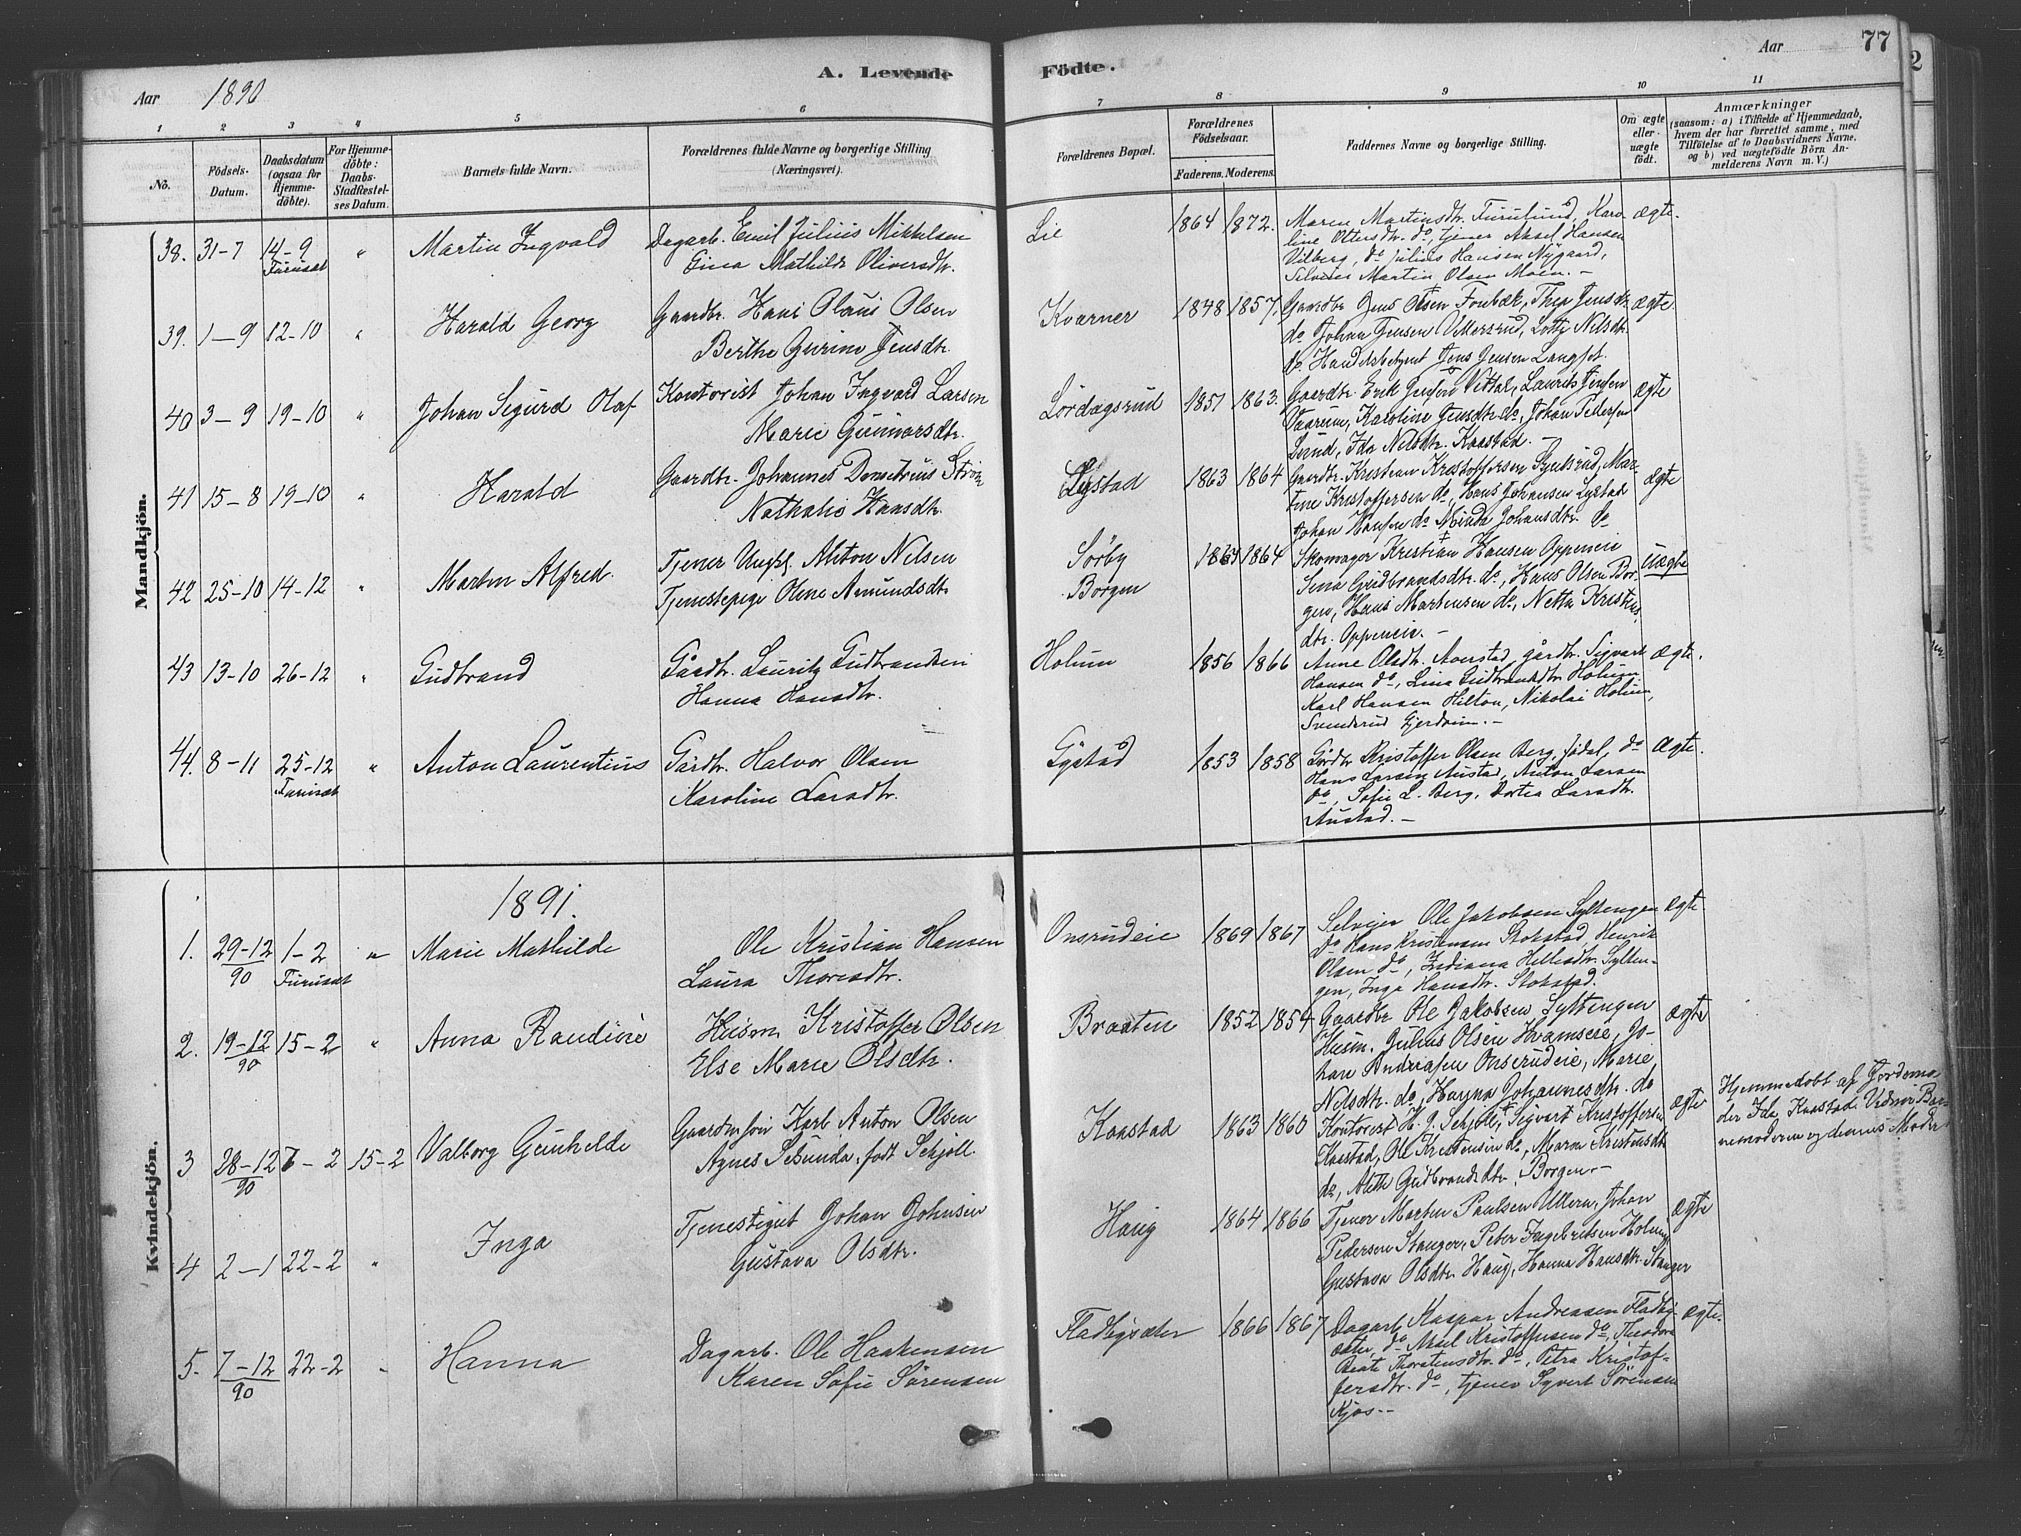 Aar 1890 A. Levende Fødte. Aar 77
1 2 3 4 5 6 7 8 9 10 11
No.
Födsels-Datum.
Daabsdatum (ogsaa for hjemme-döbte).
For Hjemme-döbte: Daabs-Stadfæstel-ses Datum.
Barnets fulde Navn.
Forældrenes fulde Navne og borgerlige Stilling (Næringsvei).
Forældrenes Bopæl.
Forældrenes Födselsaar.
Faderens. Moderens.
Faddernes Navne og borgerlige Stilling.
Om ægte eller uægte födt.
Anmærkninger
(saasom: a) i Tilfælde af Hjemmedaab,
hvem der har forrettet samme, med
Tilföielse af to Daabsvidners Navne,
og b) ved uægtefödte Börn An-
melderens Navn m. V.)
Mandkjön.
38. 31-7 14-9 Furuset " Martin Ingvald
Dagarb. Emil Julius Mikkelsen
Gina Mathilde Oliversdtr.
Lie 1864 1872.
Maren Martinsdtr. Furulund, Karo-
line Ottersdtr. do, tjener Aksel Hansen
Vilberg, do Julius Hansen Nygaard,
Selveier Martin Olsen Moen. -
ægte.
39. 1-9 12-10 " Harald Georg
Gaardbr. Hans Olaus Olsen
Berthe Gurine Jensdtr.
Kværner 1848 1857.
Gaardbr Jens Olsen Fonbæk, Thea Jensdtr
do Johan Jensen Ullersrud, Lotte Nilsdtr.
do Handelsbetjent Jens Jensen Langset.
ægte.
40 3-9 19-10 " Johan Sigurd Olaf
Kontorist Johan Ingvard Larsen
Marie Gunnarsdtr.
Lördagsrud 1851 1863.
Gaardbr. Erik Jensen Vittal, Laurits Jensen
Vaarum, Karoline Jensdtr do, Johan Pedersen
Lund, Ida Nilsdtr. Kaastad. -
ægte
41 15-8 19-10 " Harald
Gaardbr. Johannes Demetrius Ström
Nathalie Hansdtr.
Lystad 1863 1864
Gaardbr. Kristian Kristoffersen Sjulsrud, Mar-
tine Kristoffersen do, Hans Johansen Lystad
Johan Hansen do Minda Johansdtr. do
ægte
42 25-10 14-12 " Martin Alfred.
Tjener Ungk. Anton Nilsen
Tjenestepige Oline Amundsdtr
Sörby
Borgen 1864 1864
Skomager Kristian Hansen Oppeneie
Lena Gudbrandsdtr. do, Hans Olsen Bor-
gen, Hans Martinsen do, Netta Kristens
dtr. Oppeneie. -
Uægte
43 13-10 26-12 " Gudbrand
Gårdbr. Lauritz Gudbrandsen
Hanna Hansdtr.
Holum 1856 1866
Anne Olsdtr. Averstad, gårdbr. Sigvart
Hansen do, Lina Gudbrandsdtr Holum,
Karl Hansen Hilton, Nikolai Holum,
Svenderud Gjerdrum. -
ægte.
44. 8-11 25-12 Furuset " Anton Laurentius
Gårdbr. Halvor Olsen
Karoline Larsdtr.
Gystad 1853 1858
Gårdbr Kristoffer Olsen Berg, födal, do
Hans Larsen Austad, Anton Larsen
do, Sofie L. Berg, Dortea Larsdtr.
Austad. -
ægte.
Kvindekjön.
1891.
1. 29-12/90 1-2 Furuset " Marie Mathilde
Ole Kristian Hansen
Laura Thoresdtr.
Onsrudeie 1869 1867
Selveier Ole Jakobsen Syltengen
do Hans Kristensen Stokstad, Henrik
Olsen do, Indiana Hellesdtr. Sylten-
gen, Inga Hansdtr. Stokstad.
ægte
2. 19-12/90 15-2 " Anna Raudine
Husm. Kristoffer Olsen
Else Marie Olsdtr.
Braaten 1852 1854
Gaardbr Ole Jakobsen Syltengen
Husm. Julius Olsen Kramseie, Jo-
han Andreasen Onsrudeie, Marie
Nilsdtr. do, Hanna Johannesdtr. do
ægte
3 28-12/90 6-2 15-2 Valborg Gunhelde
Gaardm.sön Karl Anton Olsen
Agnes Sekunda, födt Schjöll.
Kaastad 1863 1860
Kontorist H. J. Schjöll, Sigvart Kristoffersen
Kaastad, Ole Kristensen do, Maren Kristensdtr
do, Aleth Gudbrandsdtr. Borgen. -
ægte
Hjemmedöbt af Jordemo-
der Ida Kaastad. Vidner Bar-
nemoderen og dennes Moder
4 2-1 22-2 " Inga
Tjenestegut Johan Johnsen
Gustava Olsdtr.
Haug 1864 1866
Tjener Martin Paulsen Ullern, Johan
Pedersen Stanger, Peter Ingebretsen Holum
Gustava Olsdtr Haug, Hanna Hansdtr. Stanger
ægte
5. 7-12/90 22-2 " Hanna
Dagarb. Ole Haakensen
Karen Sofie Sörensen
Fladbysæter 1866 1867
Dagarb. Kaspar Andreasen Fladby-
sæter, do Aksel Kristoffersen do, Theodora
Beate Thorstensdtr. do, Petra Kristof-
fersdtr. do, tjener Syvert Sörensen
Kjos. -
ægte.